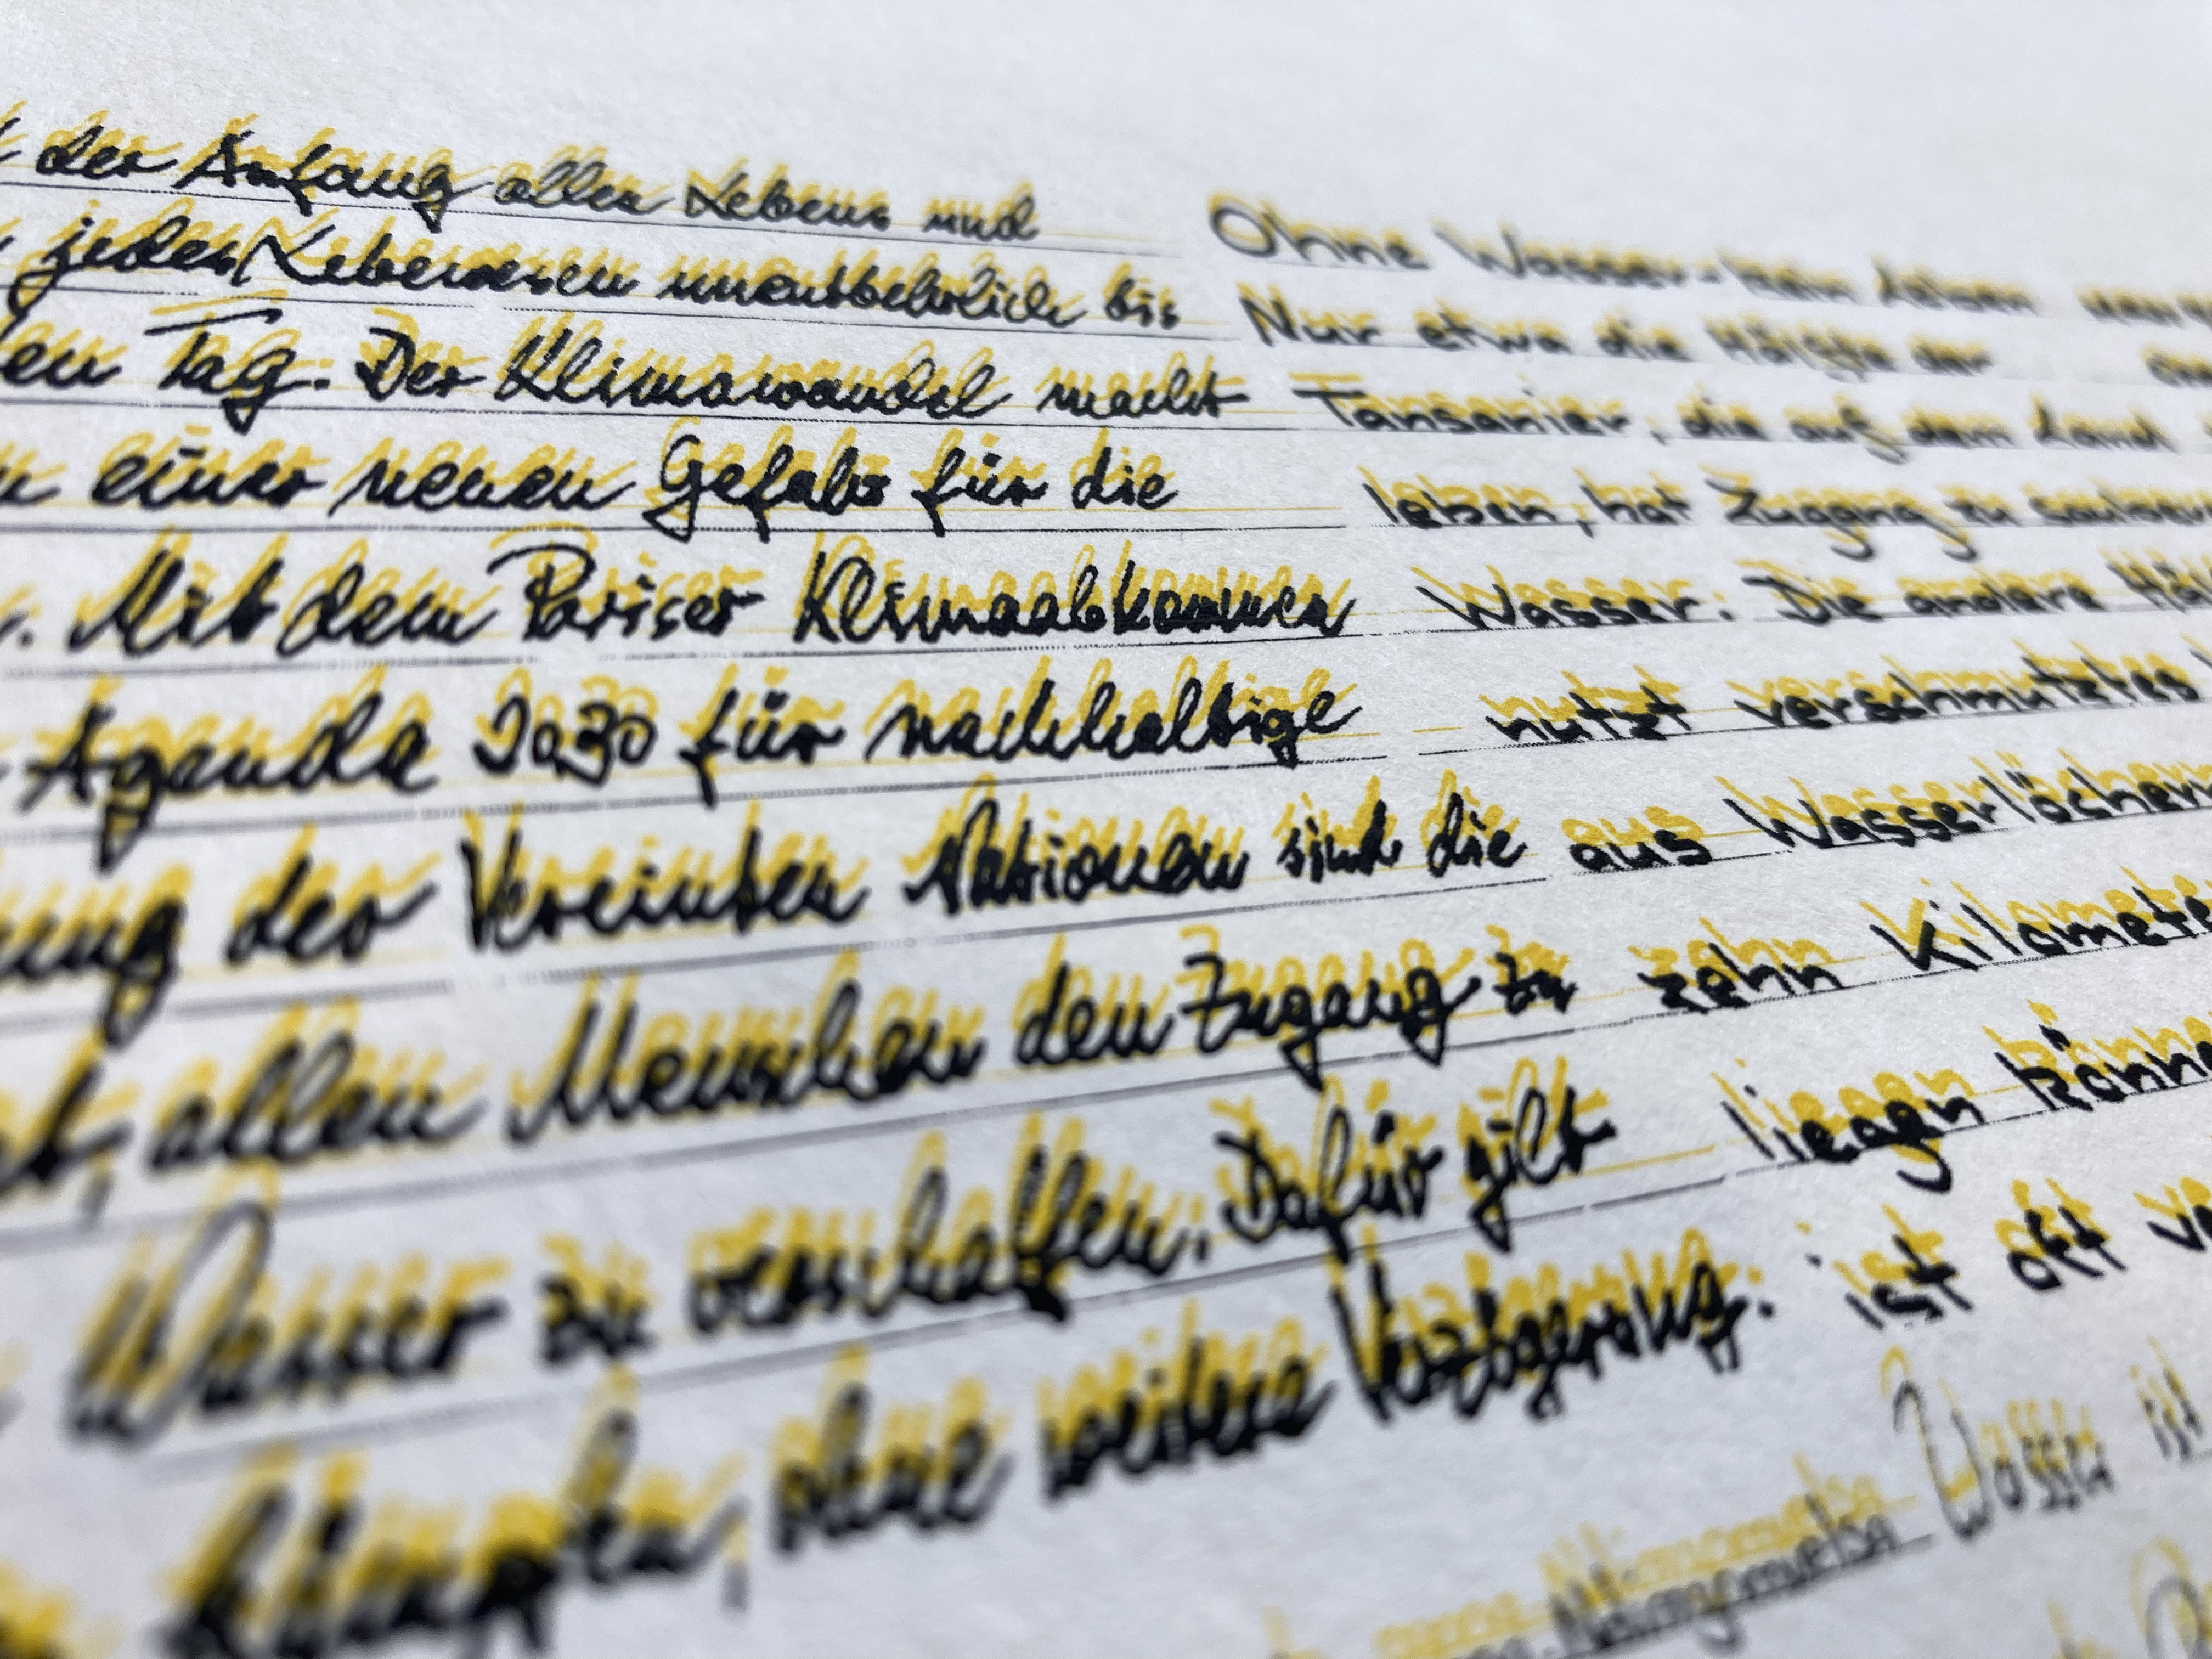 der Anfang allen Lebens und
jedes Lebewesen unentbehrlich bis
Tag. Der Klimawandel macht
einer neuen Gefahr für die
Mit dem Pariser Klimaabkommen
Agenda 2030 für nachhaltige
der Vereinten Nationen sind die
allen Menschen den Zugang zu
Wasser zu verschaffen. Dafür gilt
kämpfen, ohne weitere Verzögerung.
Ohne Wasser - kein Leben
Nur etwa die Hälfte der
Tansanier, die auf dem Land
leben, hat Zugang zu
Wasser. Die andere
nutzt verschmutztes
aus Wasserlöchern
zehn Kilometer
liegen
ist oft
Wasser ist